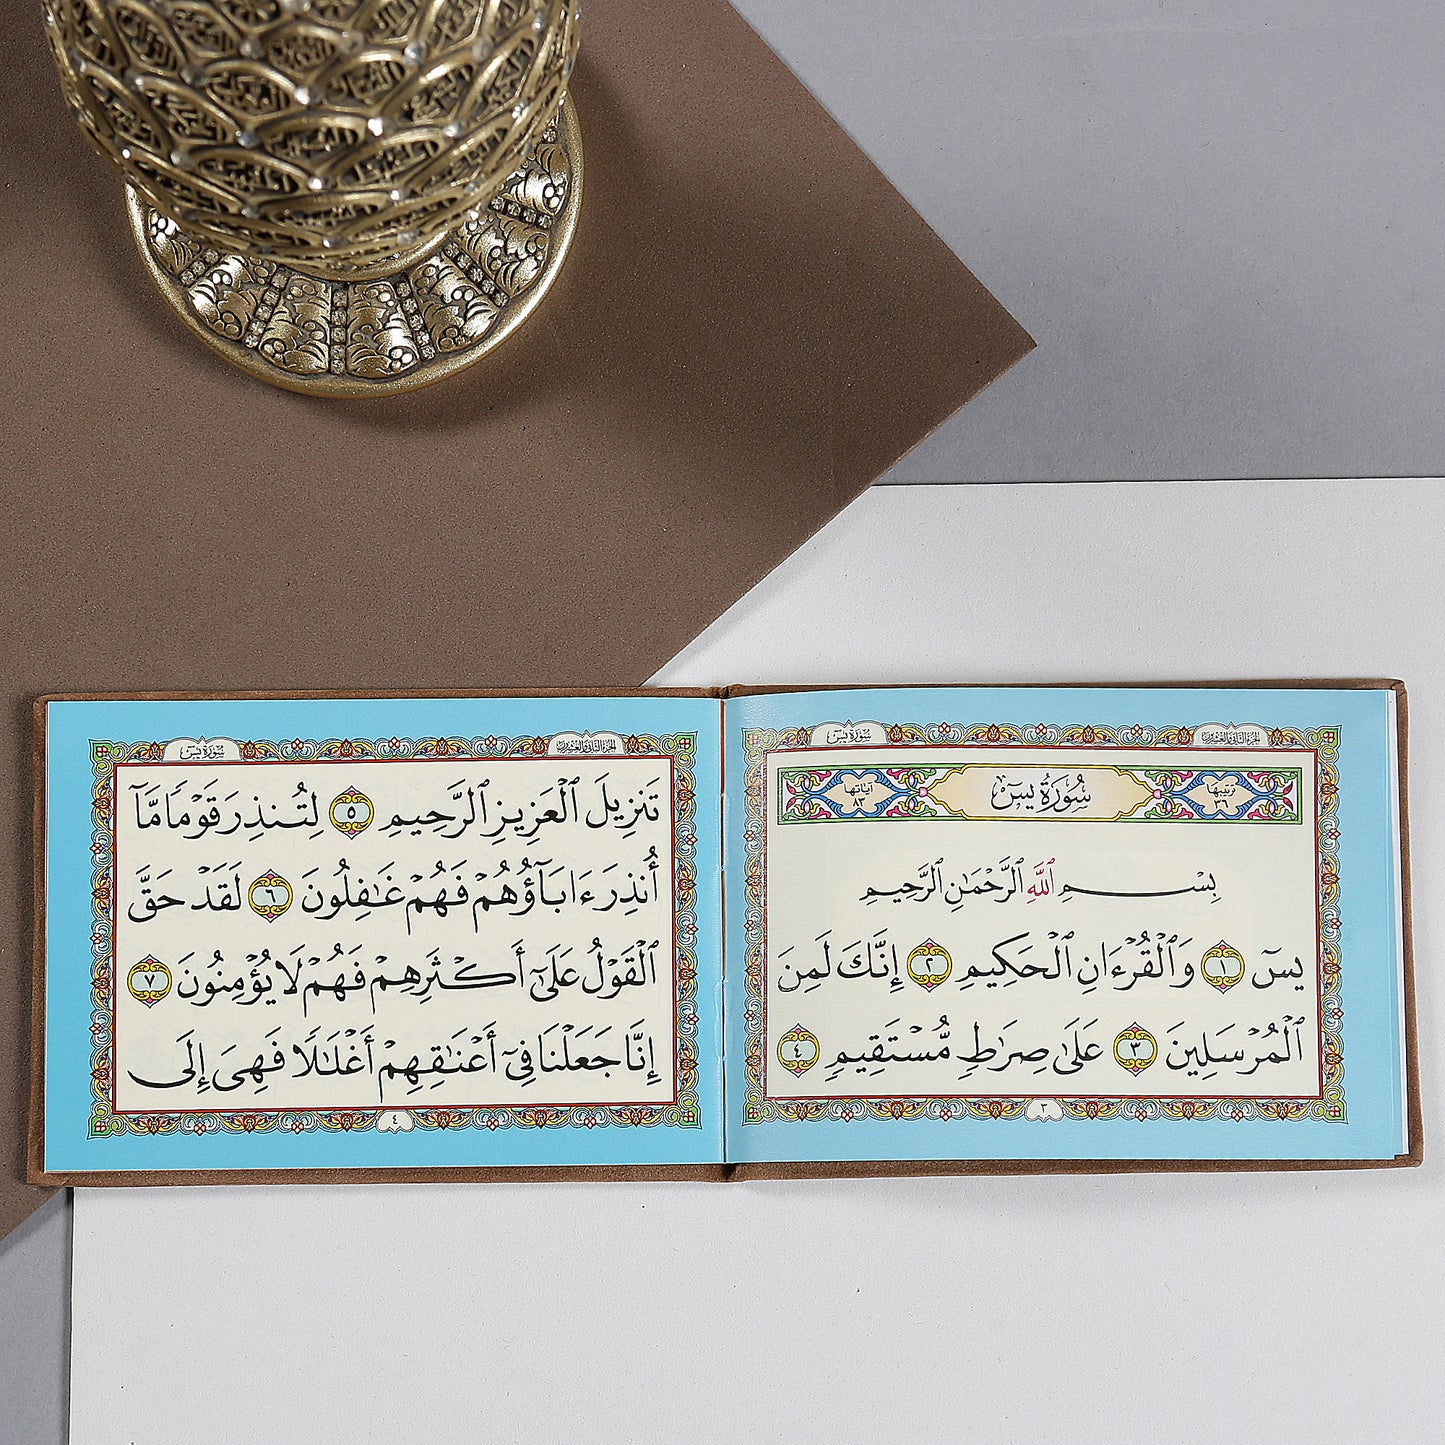 الجزء الثاني والعشرون
سورة يس
ترتيبها
٣٦
سُورَةُ يسٓ
آياتها
٨٣
بِسْمِ ٱللَّهِ ٱلرَّحْمَٰنِ ٱلرَّحِيمِ
يسٓ ١ وَٱلْقُرْءَانِ ٱلْحَكِيمِ ٢ إِنَّكَ لَمِنَ
ٱلْمُرْسَلِينَ ٣ عَلَىٰ صِرَٰطٍ مُّسْتَقِيمٍ ٤
٣
الجزء الثاني والعشرون
سورة يس
تَنزِيلَ ٱلْعَزِيزِ ٱلرَّحِيمِ ٥ لِتُنذِرَ قَوْمًا مَّآ
أُنذِرَ ءَابَآؤُهُمْ فَهُمْ غَٰفِلُونَ ٦ لَقَدْ حَقَّ
ٱلْقَوْلُ عَلَىٰٓ أَكْثَرِهِمْ فَهُمْ لَا يُؤْمِنُونَ ٧
إِنَّا جَعَلْنَا فِىٓ أَعْنَٰقِهِمْ أَغْلَٰلًا فَهِىَ إِلَى
٤